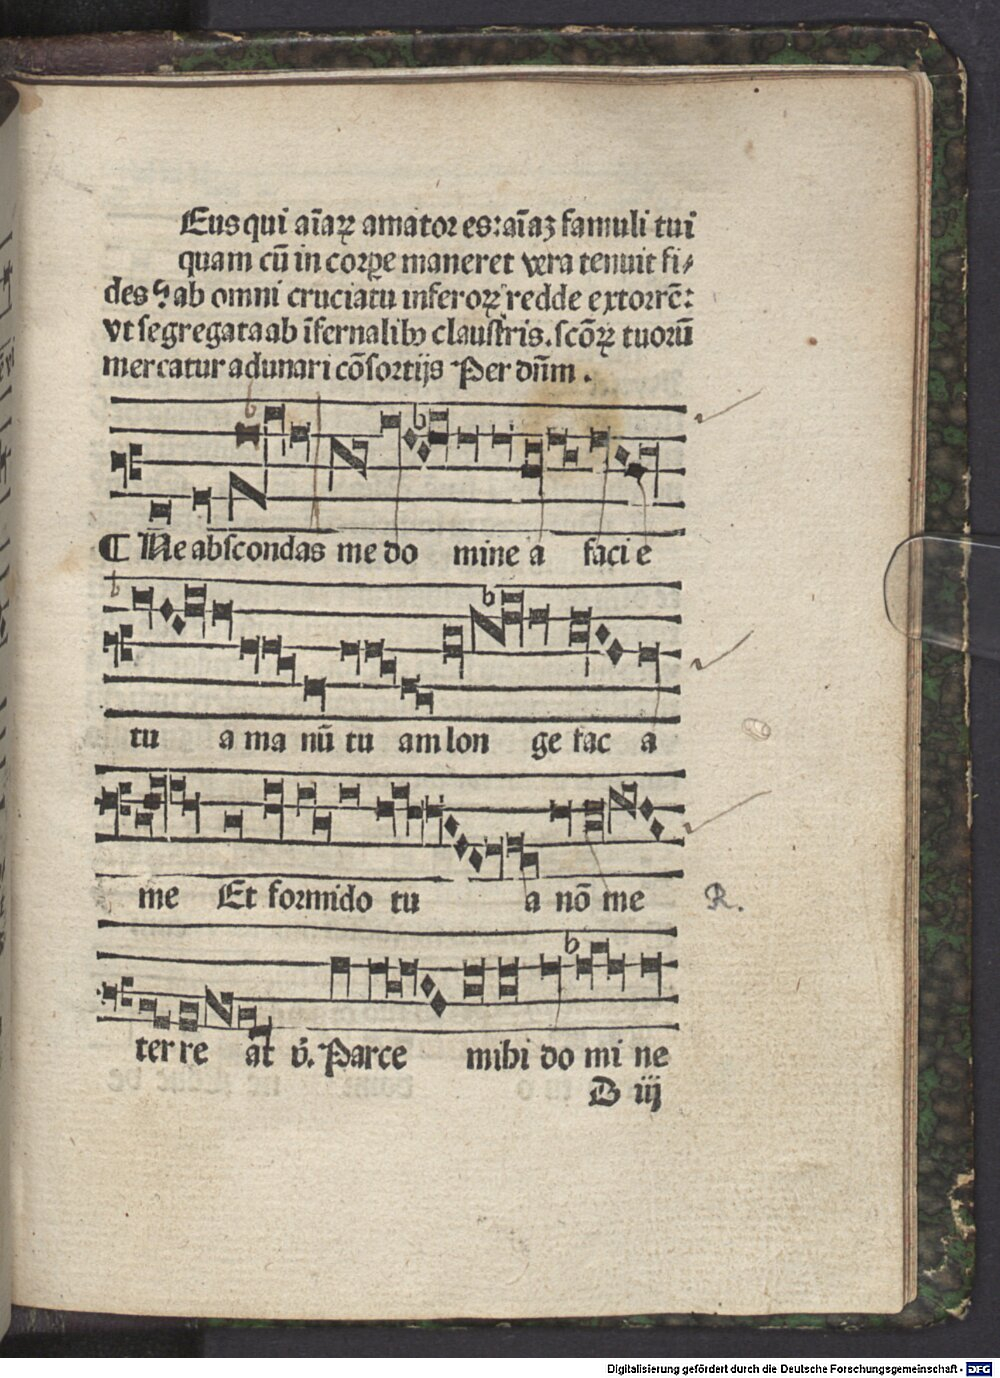 Eus qui aīaꝝ amator es: aīaꝫ famuli tui
quam cū in corꝑe maneret vera tenuit fi⸗
des ab omni cruciatu inferoꝝ redde extorrē:
vt segregata ab īfernalibꝰ claustris. scōꝝ tuorū
mercatur adunari cōsortijs Per dn̄m .
b b
¶ Ne abscondas me do mine a faci e
b b
tu a ma nū tu am lon ge fac a
me Et formido tu a nō me R.
b
ter re at v̇. Parce mihi do mi ne
B iij
Digitalisierung gefördert durch die Deutsche Forschungsgemeinschaft - DFG